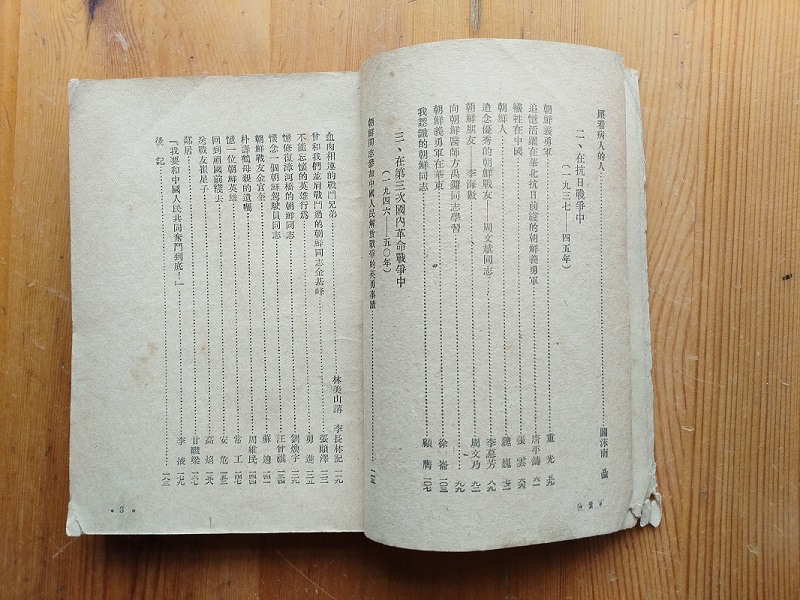 屈着病人的人……關沫南
二、在抗日戰爭中
（一九三七——四五年）
朝鮮義勇軍……重光
追憶活躍在華北抗日前綫的朝鮮義勇軍……唐平鑄 六一
犧牲在中國……張雲 六六
朝鮮人……魏巍 七二
追念優秀的朝鮮戰友——周文斌同志……李嘉芳 八九
朝鮮朋友——李海徹……周文乃 九二
向朝鮮醫師方禹鏞同志學習……九九
朝鮮義勇軍在華東……徐崙 一〇三
我認識的朝鮮同志……顧膺 一〇七
三、在第三次國內革命戰爭中
（一九四六——五〇年）
朝鮮同志參加中國人民解放戰爭的英勇事蹟……一一五
• 2 •
血肉相連的戰鬥兄弟……林美山講 李長林記 一二九
曾和我們並肩戰鬥過的朝鮮同志金基峰……張順澤 一三一
不能忘懷的英雄行爲……勇進 一三五
憶修復漳河橋的朝鮮同志……劉煥宇 一三九
懷念一個朝鮮駕駛員同志……汪曾祺 一四一
朝鮮戰友金官奎……蘇適 一四四
朴壽鶴母親的遺囑……周維民
憶一位朝鮮英雄……常工 一四七
回到祖國前綫去……安危 一五三
送戰友崔星子……高焰 一六八
鄰居……甘曦梁 一七六
『我要和中國人民共同奮鬥到底！』……李波 一七九
後記……一八三
• 3 •